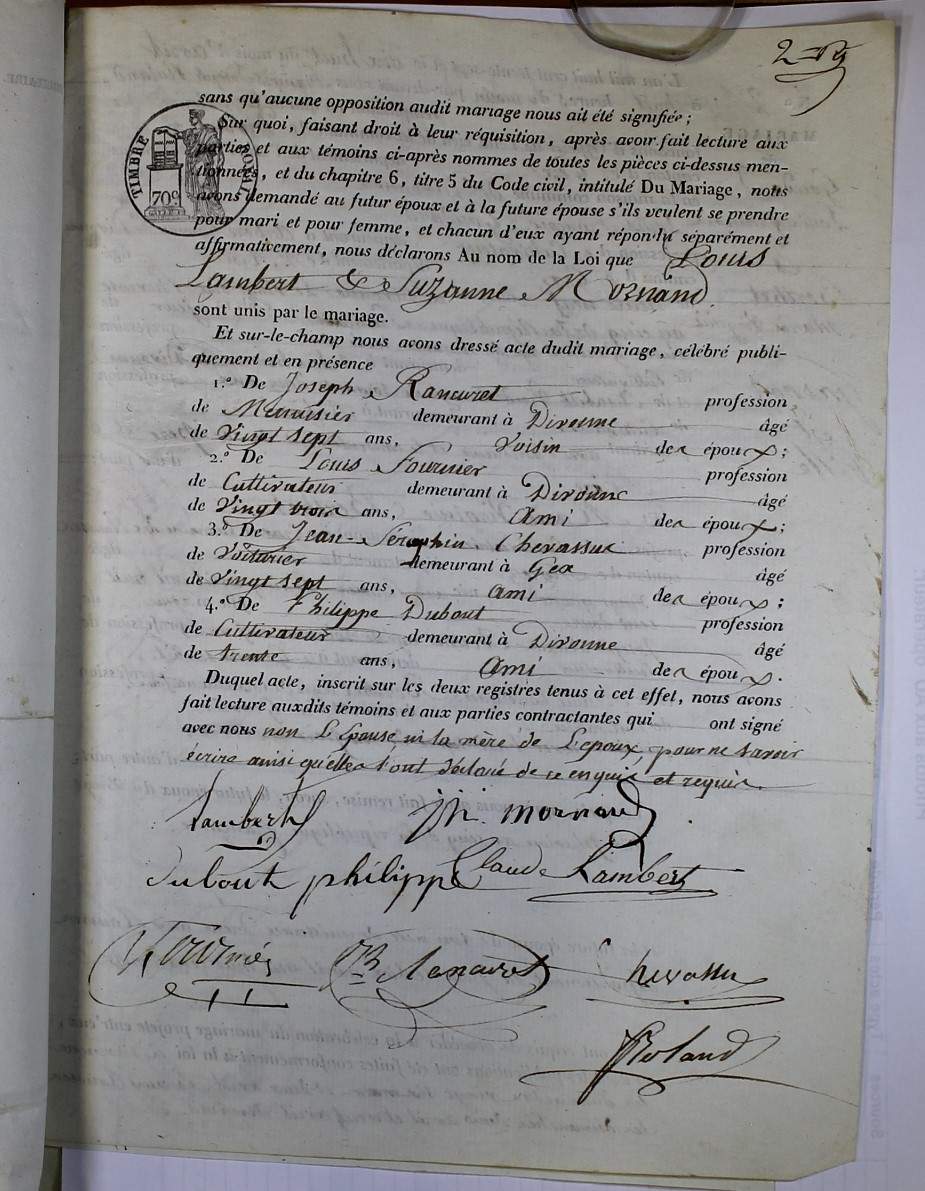 sans qu'aucune opposition audit mariage nous ait été signifiée ;
Sur quoi, faisant droit à leur réquisition, après avoir fait lecture aux
parties et aux témoins ci-après nommes de toutes les pièces ci-dessus men-
tionnées, et du chapitre 6, titre 5 du Code civil, intitulé Du Mariage, nous
avons demandé au futur époux et à la future épouse s'ils veulent se prendre
pour mari et pour femme, et chacun d'eux ayant répondu séparément et
affirmativement, nous déclarons Au nom de la Loi que Louis
Lambert & Suzanne Mornand
sont unis par le mariage.
Et sur-le-champ nous avons dressé acte dudit mariage, célébré publi-
quement et en présence
1.º De Joseph Rancuret profession
de Menuisier demeurant à Divonne âgé
de Vingt sept ans, Voisin des époux ;
2.º De Louis Fournier profession
de Cultivateur demeurant à Divonne âgé
de Vingt trois ans, Ami des époux ;
3.º De Jean-Séraphin Chevassu profession
de Voiturier demeurant à Gex âgé
de Vingt sept ans, ami des époux ;
4.º De Philippe Dubout profession
de Cultivateur demeurant à Divonne âgé
de trente ans, Ami des époux.
Duquel acte, inscrit sur les deux registres tenus à cet effet, nous avons
fait lecture auxdits témoins et aux parties contractantes qui ont signé
avec nous non L'Epouse, ni la mère de L'époux, pour ne savoir
écrire ainsi qu'elles l'ont déclaré de ce enquis et requis.
Lambert jh. mornand
dubout philippe Claude Lambert
Fournier Rancuret Chevassu
Roland
TIMBRE ROYAL
70c